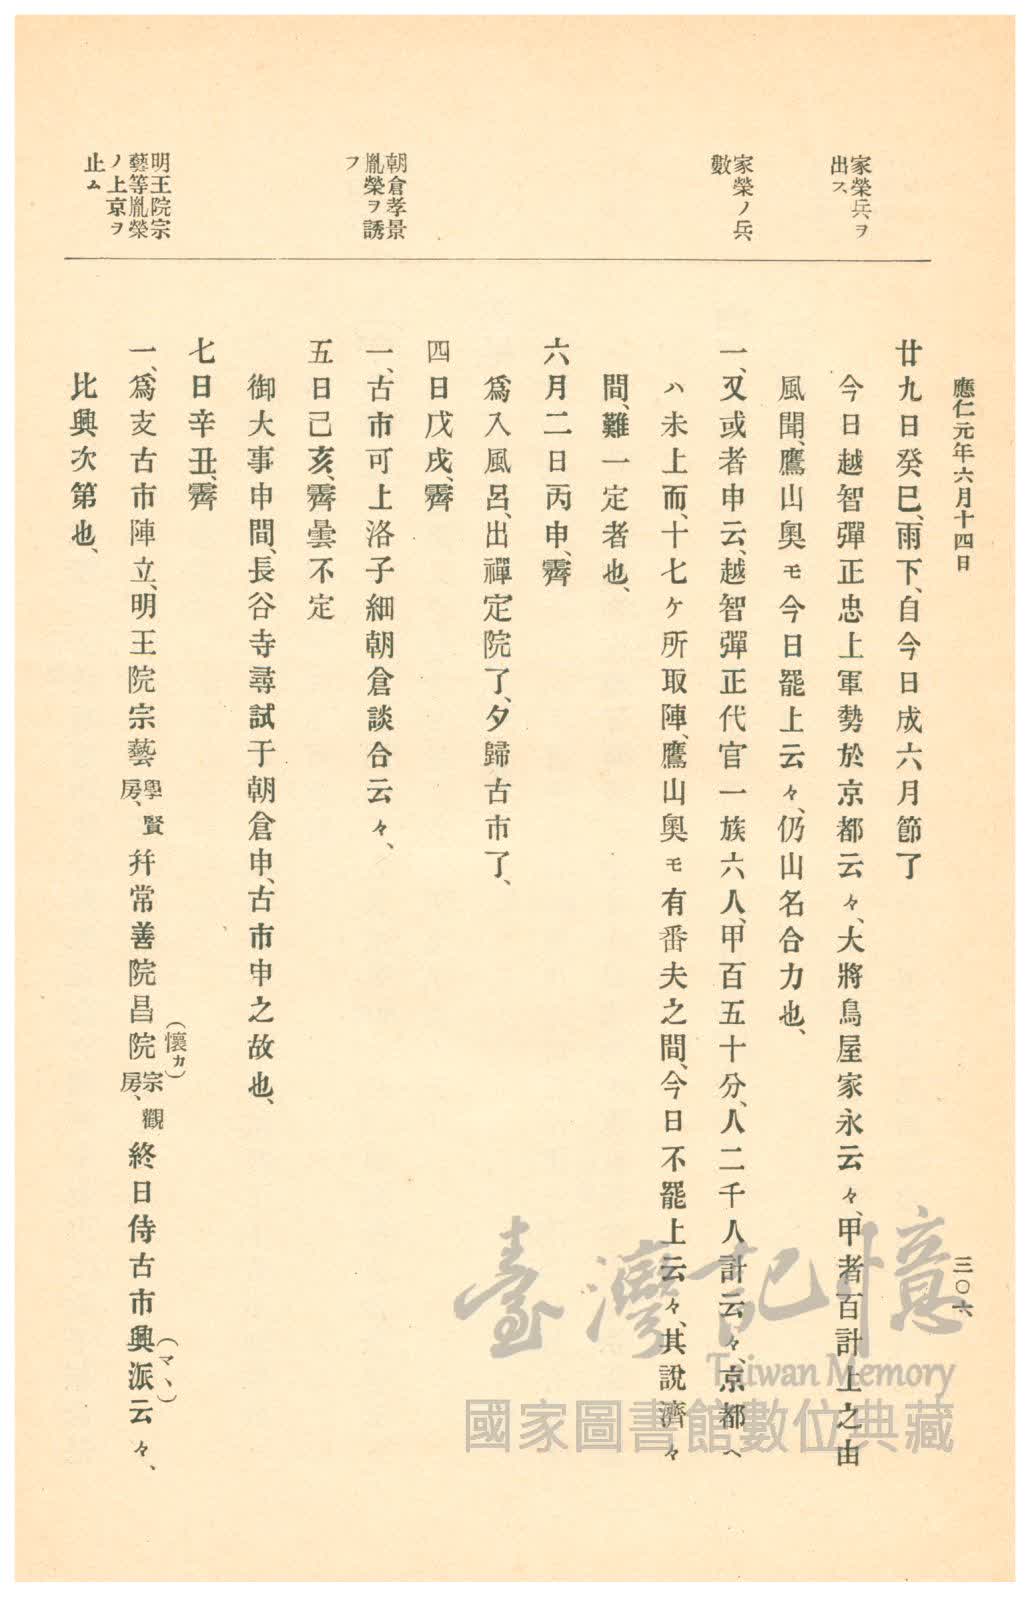 應仁元年六月十四日
三〇六
家榮兵ヲ
出ス、
家榮ノ兵
數
朝倉孝景
胤榮ヲ誘
フ
明王院宗
藝等胤榮
ノ上京ヲ
止ム
廿九日癸巳、雨下、自今日成六月節了
今日越智彈正忠上軍勢於京都云々、大將鳥屋家永云々、甲者百計上之由
風聞、鷹山奧モ今日罷上云々、仍山名合力也、
一、又或者申云、越智彈正代官一族六人、甲百五十分、人二千人計云々、京都ヘ
ハ未上而、十七ケ所取陣、鷹山奧モ有番夫之間、今日不罷上云々、其說濟々
間、難一定者也、
六月二日丙申、霽
爲入風呂、出禪定院了、夕歸古市了、
四日戊戌、霽
一、古市可上洛子細朝倉談合云々、
五日己亥、霽曇不定
御大事申間、長谷寺尋試于朝倉申、古市申之故也、
七日辛丑、霽
一、爲支古市陣立、明王院宗藝學賢房、幷常善院昌院(懷カ)宗觀房、終日侍古市興派(マヽ)云々、
比興次第也、
臺灣記憶
Taiwan Memory
國家圖書館數位典藏